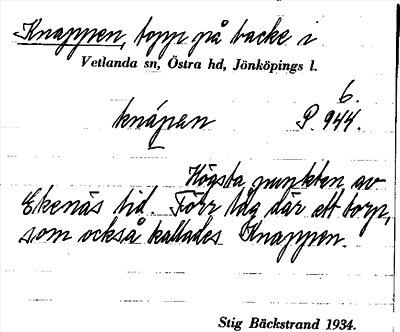 Knappen, topp på backe i
Vetlanda sn, Östra hd, Jönköpings l.
6.
knápen P. 944.
Högsta punkten av
Ekenäs tid. Förr låg där ett torp,
som också kallades Knappen.
Stig Bäckstrand 1934.